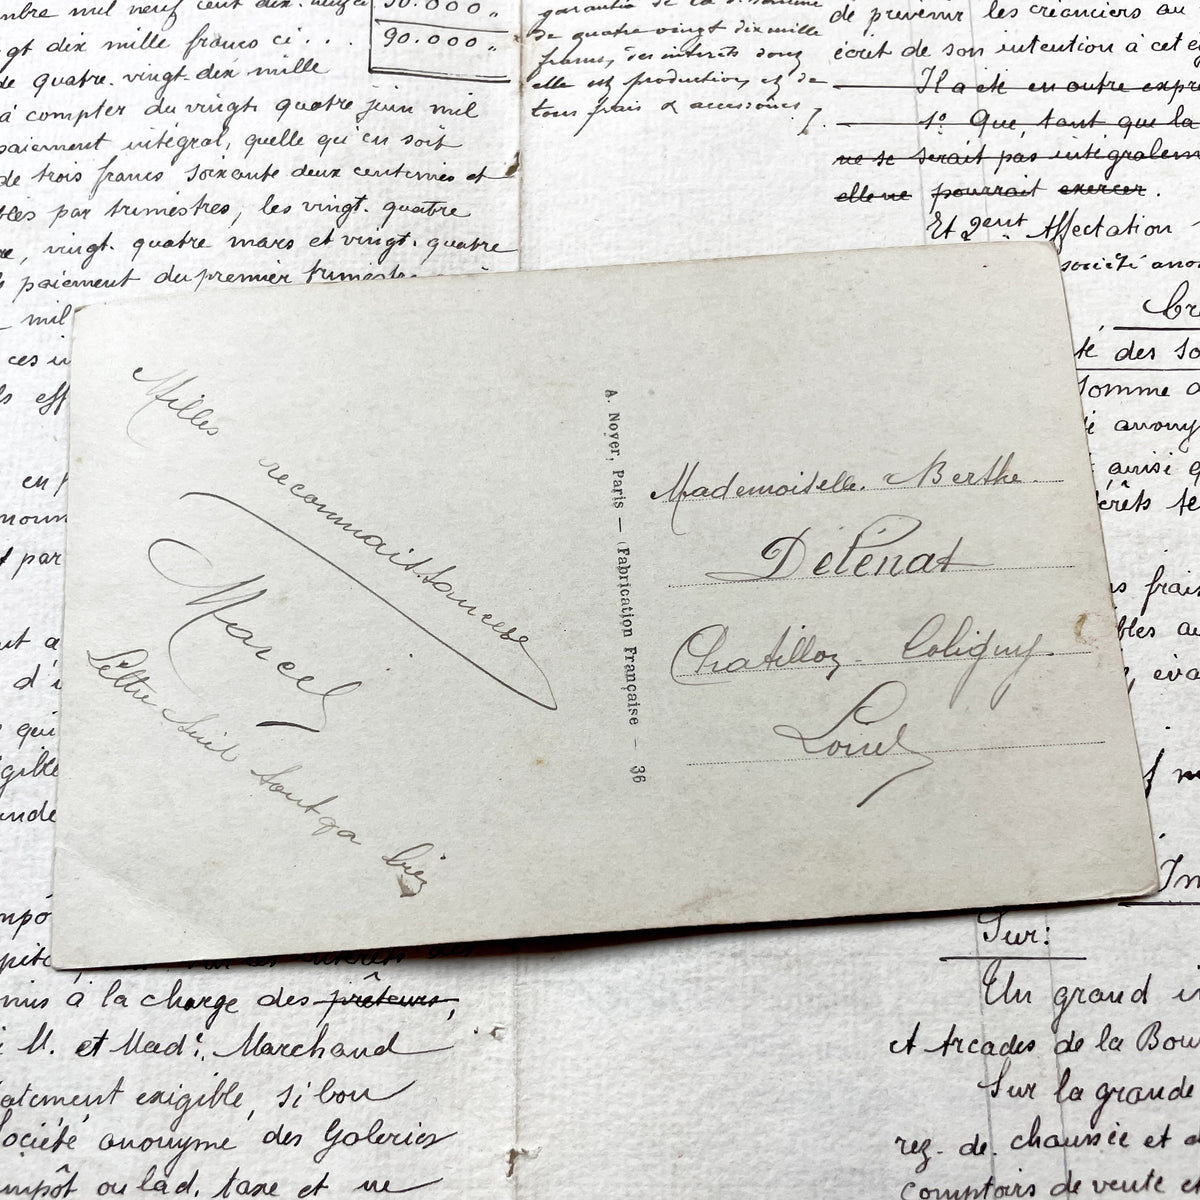 mil neuf cent dix. neuf
90.000 "
90.000 "
gt dix mille francs ci . . .
de quatre. vingt. dix mille
à compter du vingt. quatre juin mil
paiement intégral, quelle qu'en soit
de trois francs soixante deux centimes et
par trimestres, les vingt. quatre
vingt. quatre mars et vingt. quatre
paiement du premier trimestre
mil
ces in
garantie de la
de quatre vingt dix mille
francs, des intérêts dont
elle est productive, et de
tous frais & accessoires
de prévenir les créanciers au
écrit de son intention à cet
Il a été en outre expre
1º Que, tant que la
ne se serait pas intégralem
elle ne pourrait exercer.
Et Affectation
société ano
té des So
Somme
anony
ainsi q
érêts
s frais
bles au
, éva
Milles
reconnait.sances
Marcel
Lettre Suit tout ça bien
A. Noyer, Paris — (Fabrication Française — 36
Mademoiselle. Berthe.
Délénat
Chatillon - Coligny.
Loiret
en
par
d'i
qui
gible
ande
impô
mis à la charge des prêteurs,
M. et Made. Marchand
atement exigible, si bon
Société anonyme des Galeries
impôt ou lad. taxe et ne
Sur:
Un grand i
et Arcades de la Bou
Sur la grande
rez. de. chaussée et
comptoirs de vente et